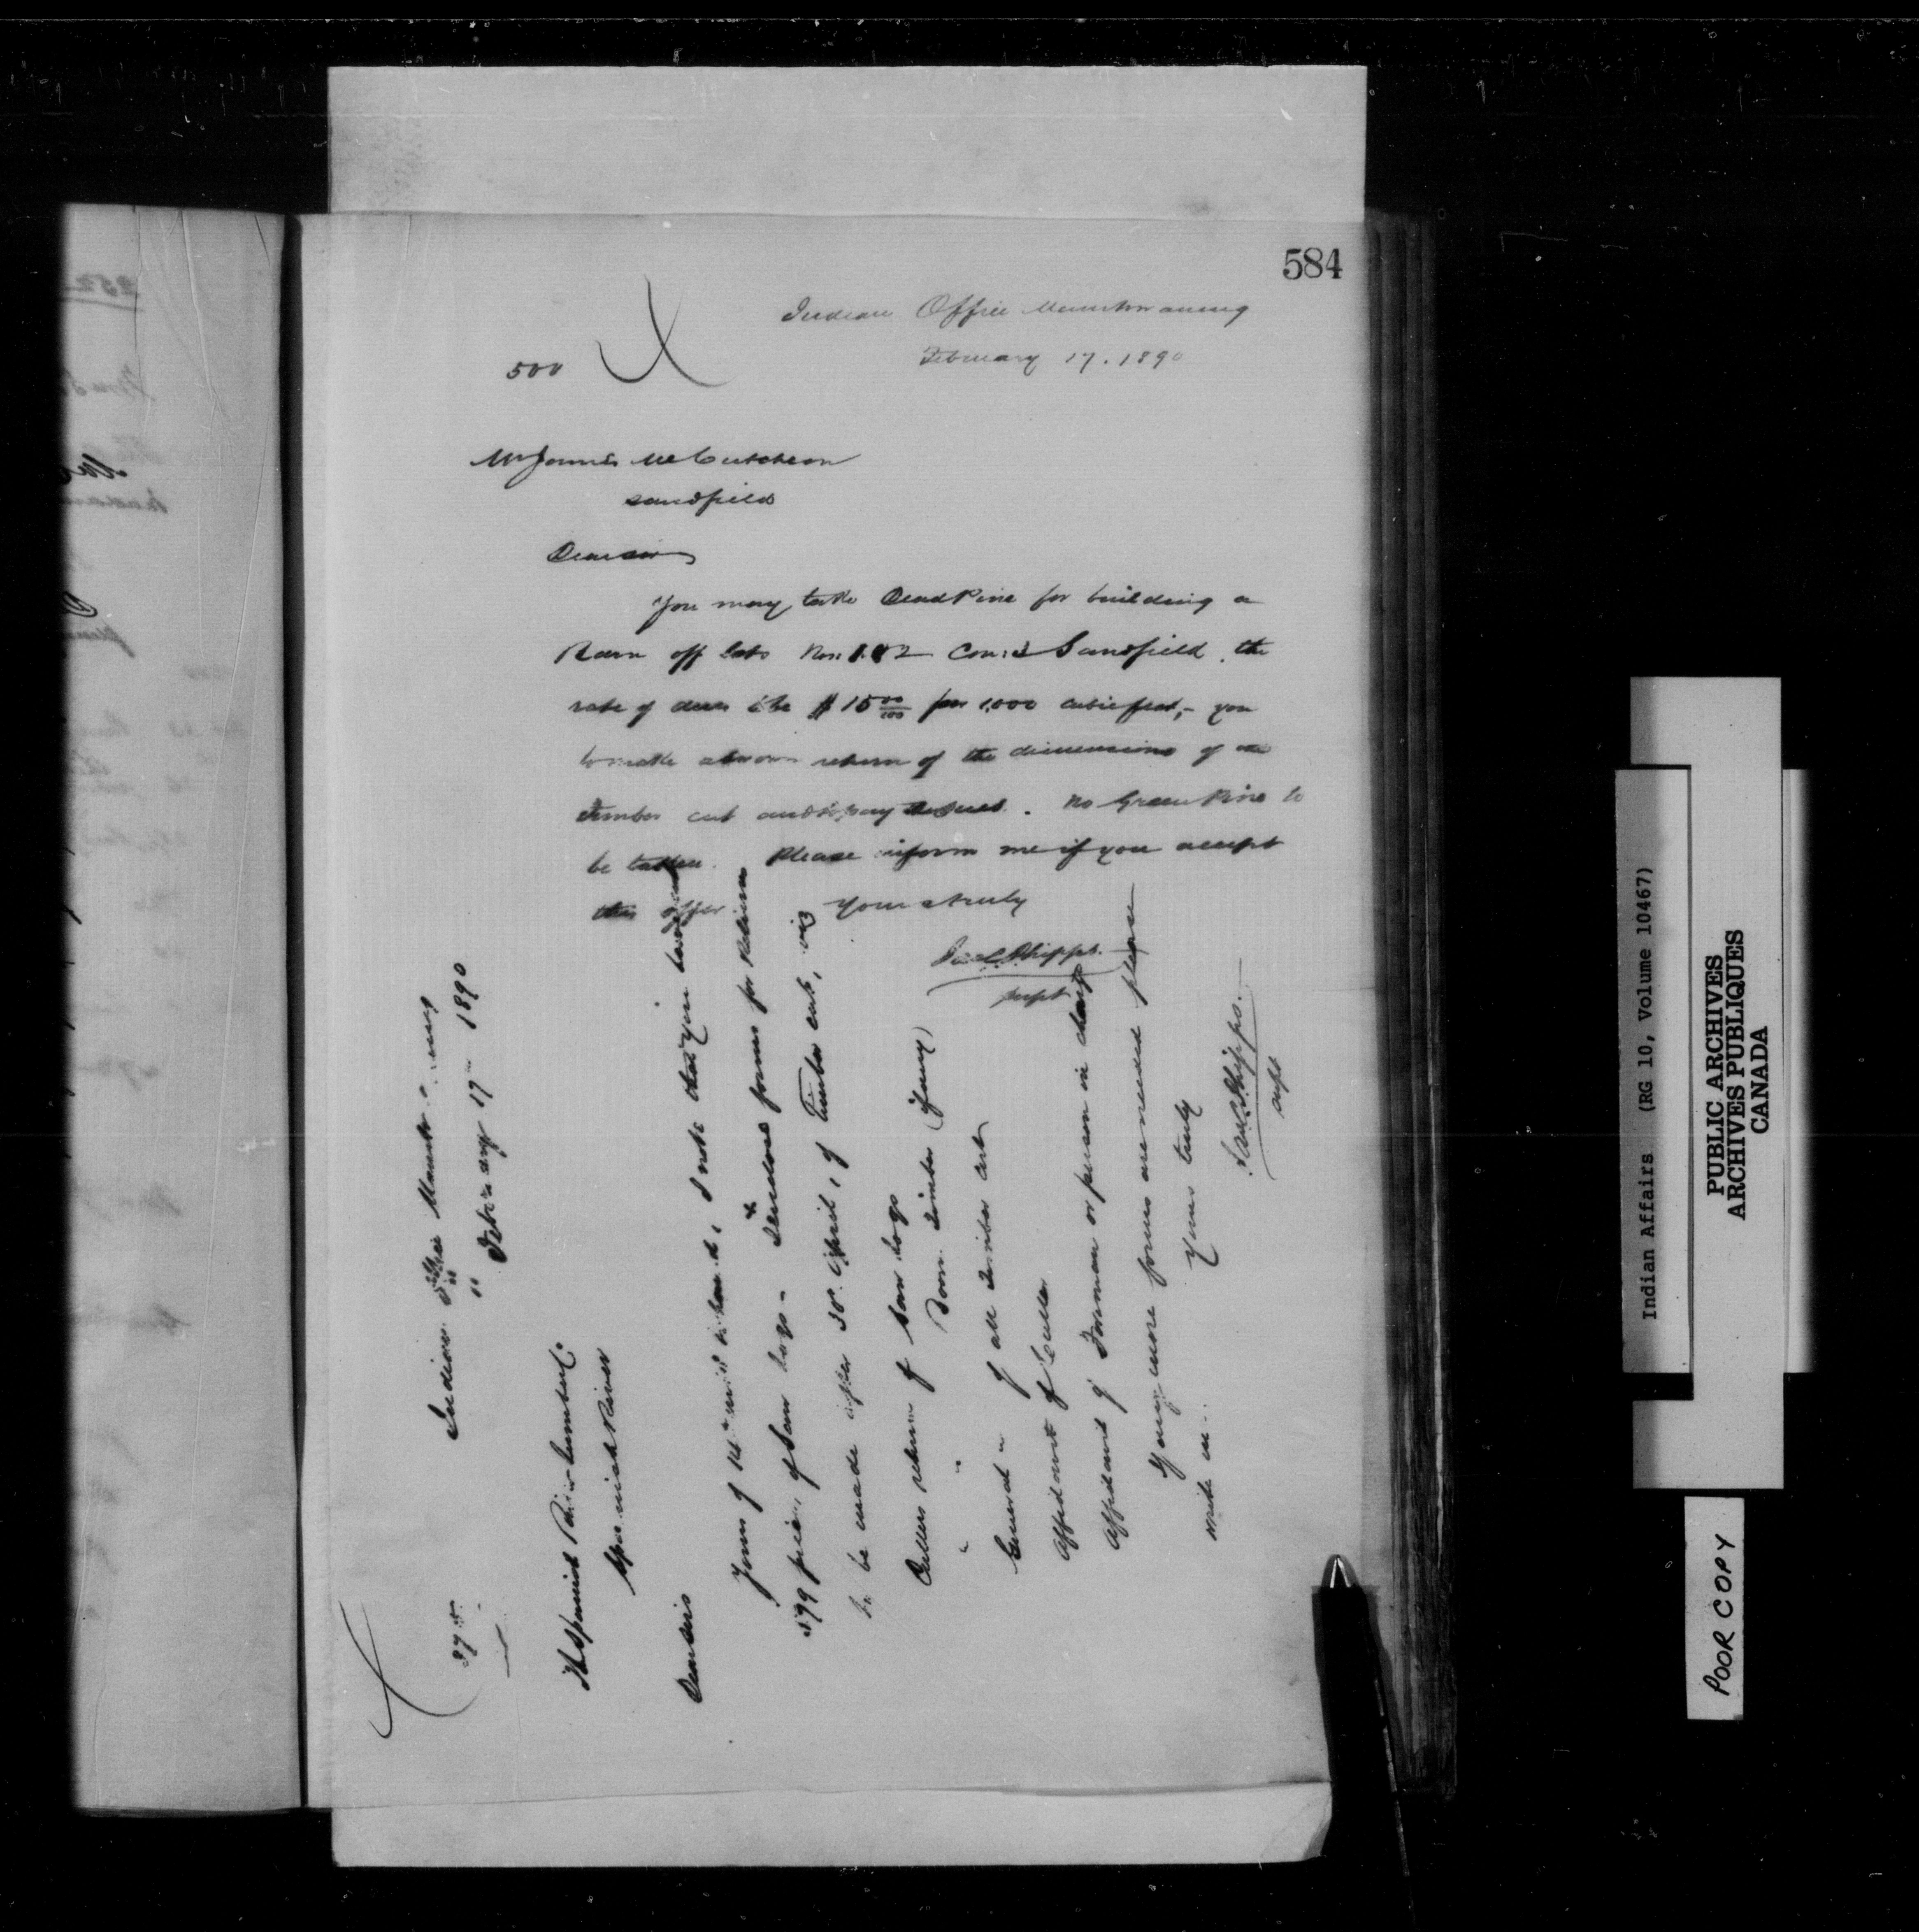 584
Indian Office Manitowaning
February 17. 1890
500
Mr James McCutcheon
Sandfield
Dear sir
You may take Dead Pine for building a
Barn off lots Nos 1 & 2 Con: Sandfield, the
rate of dues to be $15 00/100 per 1,000 cubic feet,- you
to make a sworn return of the dimensions of the
Timber cut and to pay the dues. No Green Pine to
be taken. Please inform me if you accept
this offer Yours truly
Jas C Phipps.
supt
Indian Office Manitowaning
February 17 1890
The Spanish River Lumber Co
Spanish River
Dear Sirs
Yours of 14th inst to hand, I note that you have
pieces of Saw logs - I enclose forms for Returns
to be made after 30 April, of Timber cut, viz
Cullers return of Saw Logs
" " Boom Timber (if any)
General " of all Timber cut
Affidavit of Culler
Affidavit of Foreman or person in charge
If any more forms are needed please
write me.
Yours truly
Jas C Phipps.
supt
Indian Affairs (RG 10, Volume 10467)
PUBLIC ARCHIVES
ARCHIVES PUBLIQUES
CANADA
POOR COPY